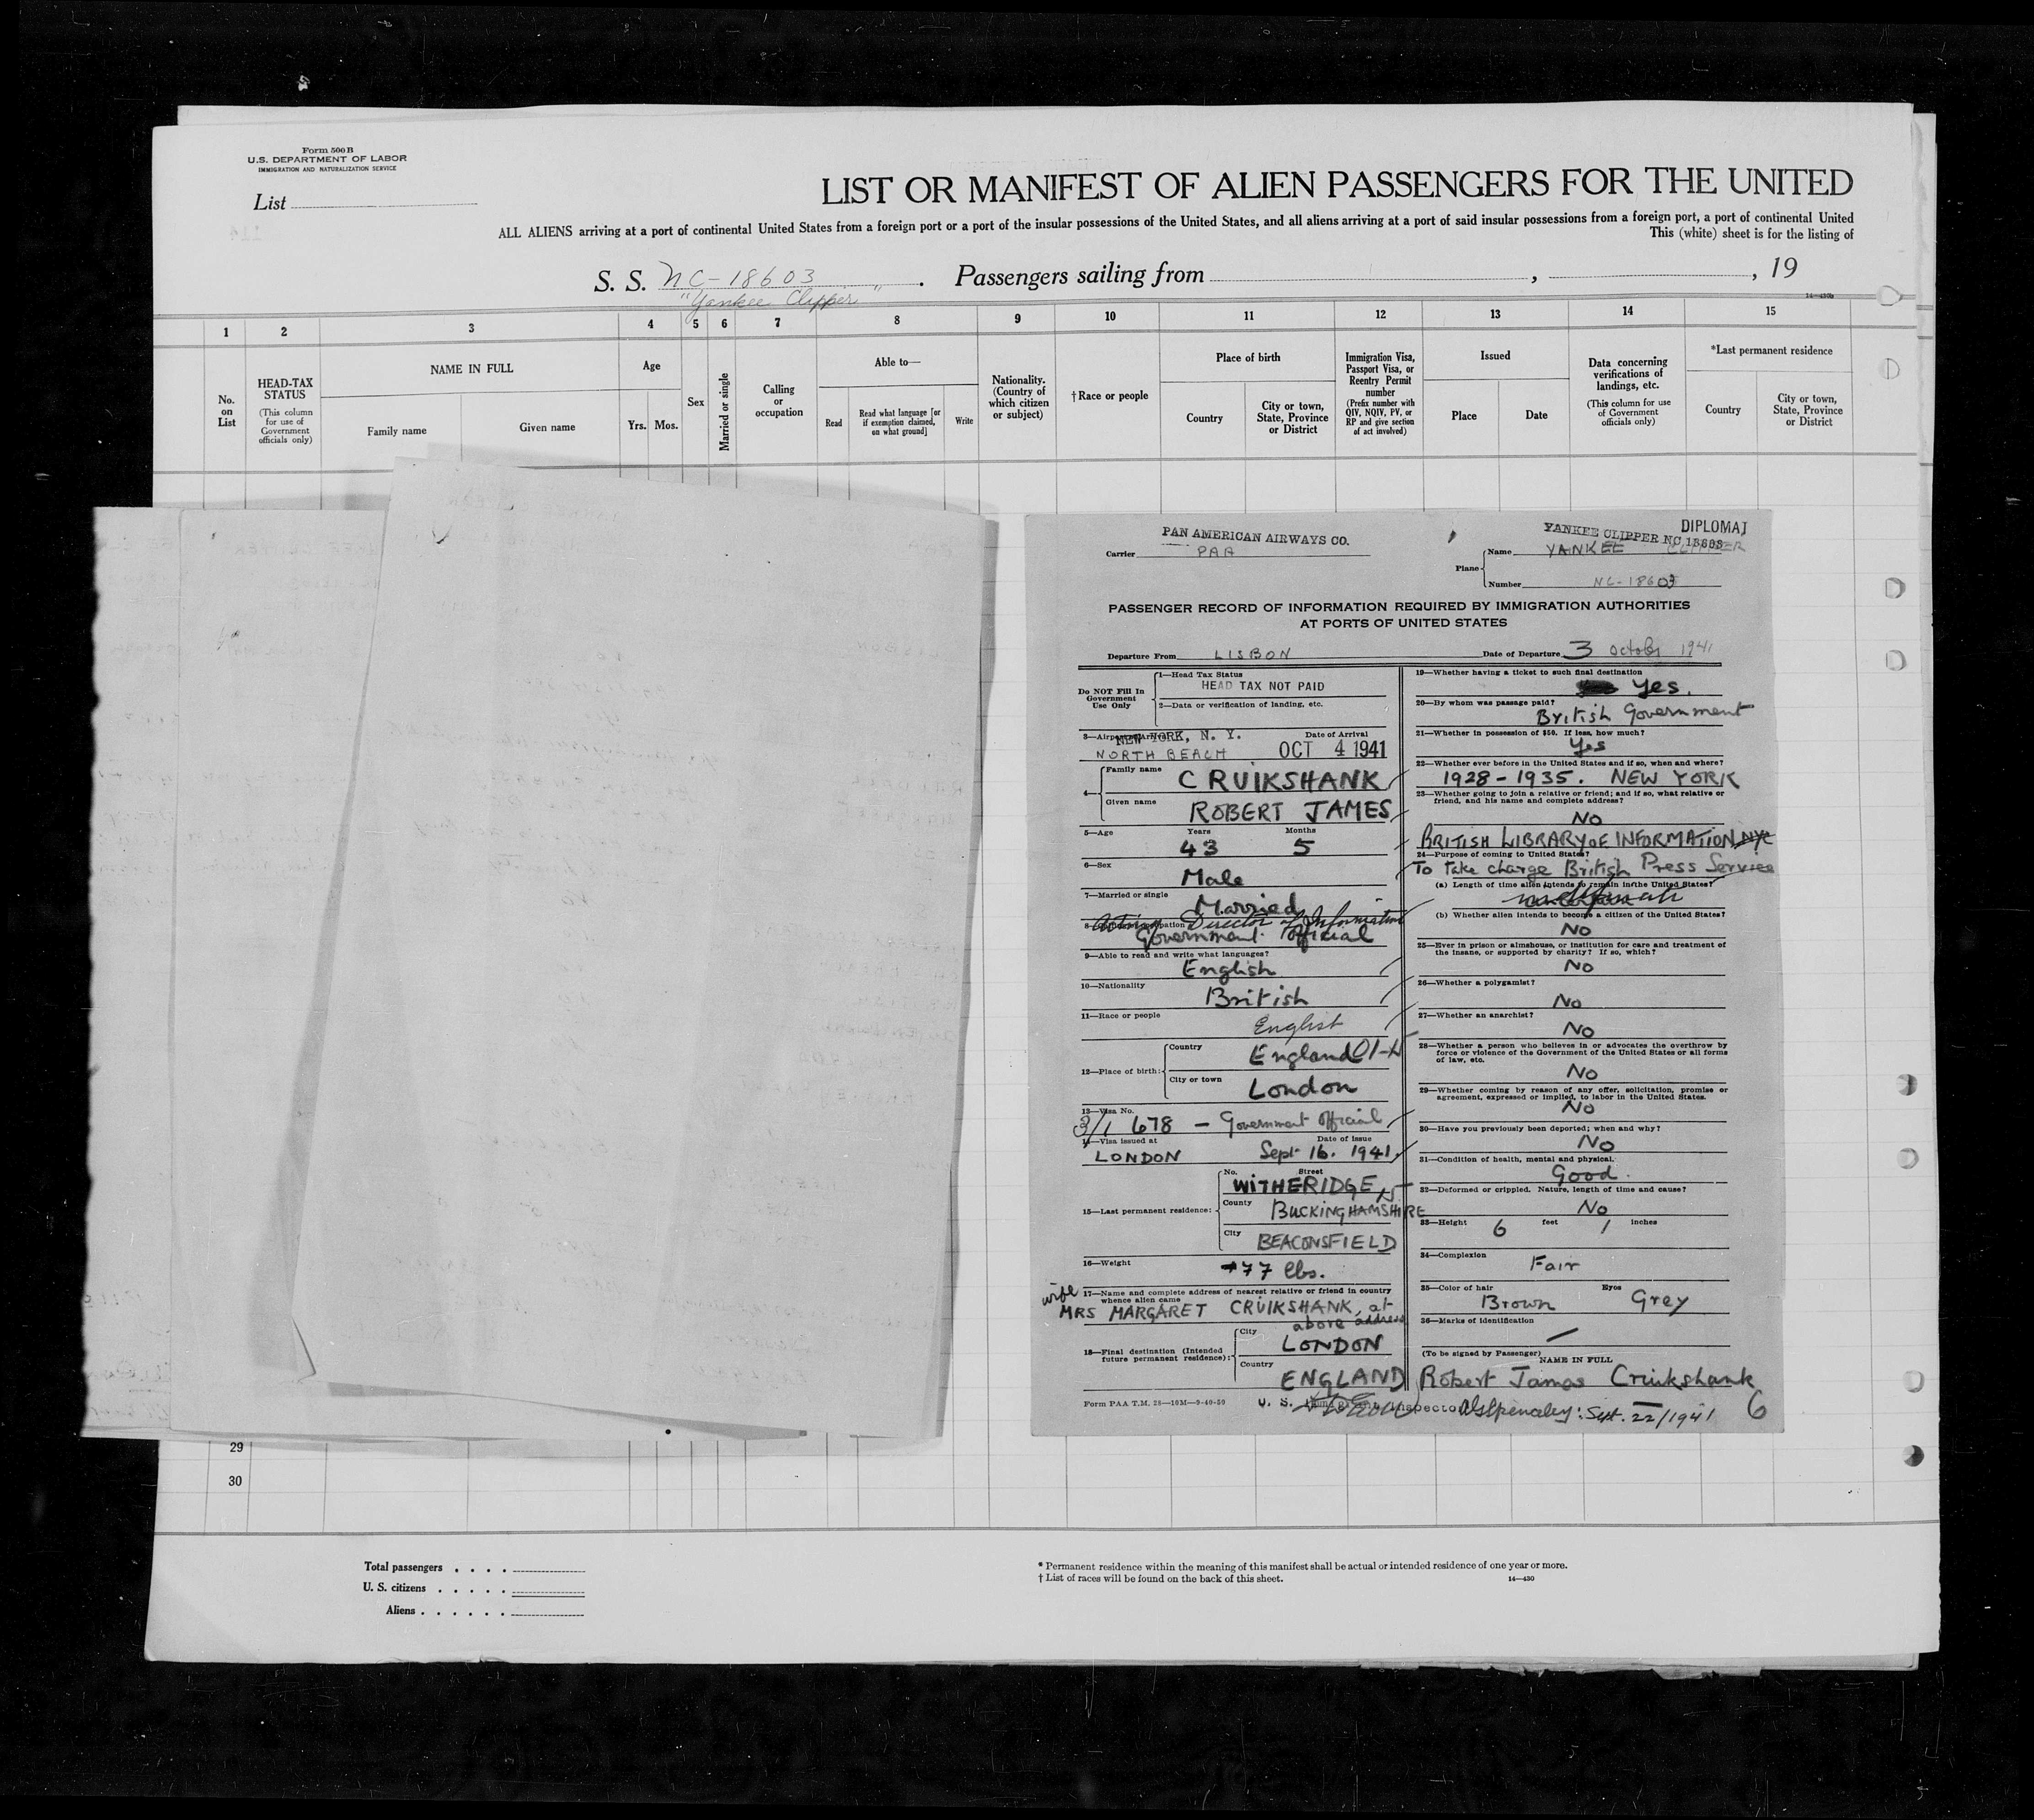 Form 500 B
U.S. DEPARTMENT OF LABOR
IMMIGRATION AND NATURALIZATION SERVICE
List
LIST OR MANIFEST OF ALIEN PASSENGERS FOR THE UNITED
ALL ALIENS arriving at a port of continental United States from a foreign port or a port of the insular possessions of the United States, and all aliens arriving at a port of said insular possessions from a foreign port, a port of continental United
This (white) sheet is for the listing of
S. S. NC-18603 . Passengers sailing from , , 19
"Yankee Clipper"
14—430b
1 2 3 4 5 6 7 8 9 10 11 12 13 14 15
No. on List
HEAD-TAX STATUS
(This column for use of Government officials only)
NAME IN FULL
Family name
Given name
Age
Yrs. Mos.
Sex
Married or single
Calling or occupation
Able to—
Read
Read what language [or if exemption claimed, on what ground]
Write
Nationality. (Country of which citizen or subject)
†Race or people
Place of birth
Country
City or town, State, Province or District
Immigration Visa, Passport Visa, or Reentry Permit number
(Prefix number with QIV, NQIV, PV, or RP and give section of act involved)
Issued
Place
Date
Data concerning verifications of landings, etc.
(This column for use of Government officials only)
*Last permanent residence
Country
City or town, State, Province or District
DIPLOMAT
PAN AMERICAN AIRWAYS CO.
YANKEE CLIPPER NC 18603
Carrier PAA
Plane
Name YANKEE CLIPPER
Number NC-18603
PASSENGER RECORD OF INFORMATION REQUIRED BY IMMIGRATION AUTHORITIES
AT PORTS OF UNITED STATES
Departure From LISBON
Date of Departure 3 October 1941
Do NOT Fill In Government Use Only
1—Head Tax Status
HEAD TAX NOT PAID
2—Data or verification of landing, etc.
3—Airport of Arrival
NEW YORK, N. Y.
NORTH BEACH
Date of Arrival
OCT 4 1941
4—
Family name CRUIKSHANK
Given name ROBERT JAMES
5—Age Years 43 Months 5
6—Sex Male
7—Married or single Married
Acting Director of Information
Government Official
9—Able to read and write what languages?
English
10—Nationality British
11—Race or people English
12—Place of birth:
Country England
City or town London
13—Visa No.
3/1 678 — Government Official
14—Visa issued at LONDON
Date of issue Sept 16. 1941.
15—Last permanent residence:
No. Street WITHERIDGE
County BUCKINGHAMSHIRE
City BEACONSFIELD
16—Weight 177 lbs.
17—Name and complete address of nearest relative or friend in country whence alien came
wife
MRS MARGARET CRUIKSHANK, at
above address
18—Final destination (Intended future permanent residence):
City LONDON
Country ENGLAND
Form PAA T.M. 28—10M—9-40-50
U. S. Immigrant Inspector
19—Whether having a ticket to such final destination
Yes.
20—By whom was passage paid?
British Government
21—Whether in possession of $50. If less, how much?
Yes
22—Whether ever before in the United States and if so, when and where?
1928-1935. NEW YORK
23—Whether going to join a relative or friend; and if so, what relative or friend, and his name and complete address?
NO
BRITISH LIBRARY OF INFORMATION NYC
24—Purpose of coming to United States?
To take charge British Press Service
(a) Length of time alien intends to remain in the United States?
(b) Whether alien intends to become a citizen of the United States?
No
25—Ever in prison or almshouse, or institution for care and treatment of the insane, or supported by charity? If so, which?
No
26—Whether a polygamist?
No
27—Whether an anarchist?
No
28—Whether a person who believes in or advocates the overthrow by force or violence of the Government of the United States or all forms of law, etc.
No
29—Whether coming by reason of any offer, solicitation, promise or agreement, expressed or implied, to labor in the United States.
No
30—Have you previously been deported; when and why?
No
31—Condition of health, mental and physical.
Good.
32—Deformed or crippled. Nature, length of time and cause?
No
33—Height 6 feet 1 inches
34—Complexion Fair
35—Color of hair Brown Eyes Grey
36—Marks of identification —
(To be signed by Passenger)
NAME IN FULL
Robert James Cruikshank
Sept. 22/1941 6
29
30
Total passengers . . . .
U. S. citizens . . . . .
Aliens . . . . . .
* Permanent residence within the meaning of this manifest shall be actual or intended residence of one year or more.
† List of races will be found on the back of this sheet.
14—430